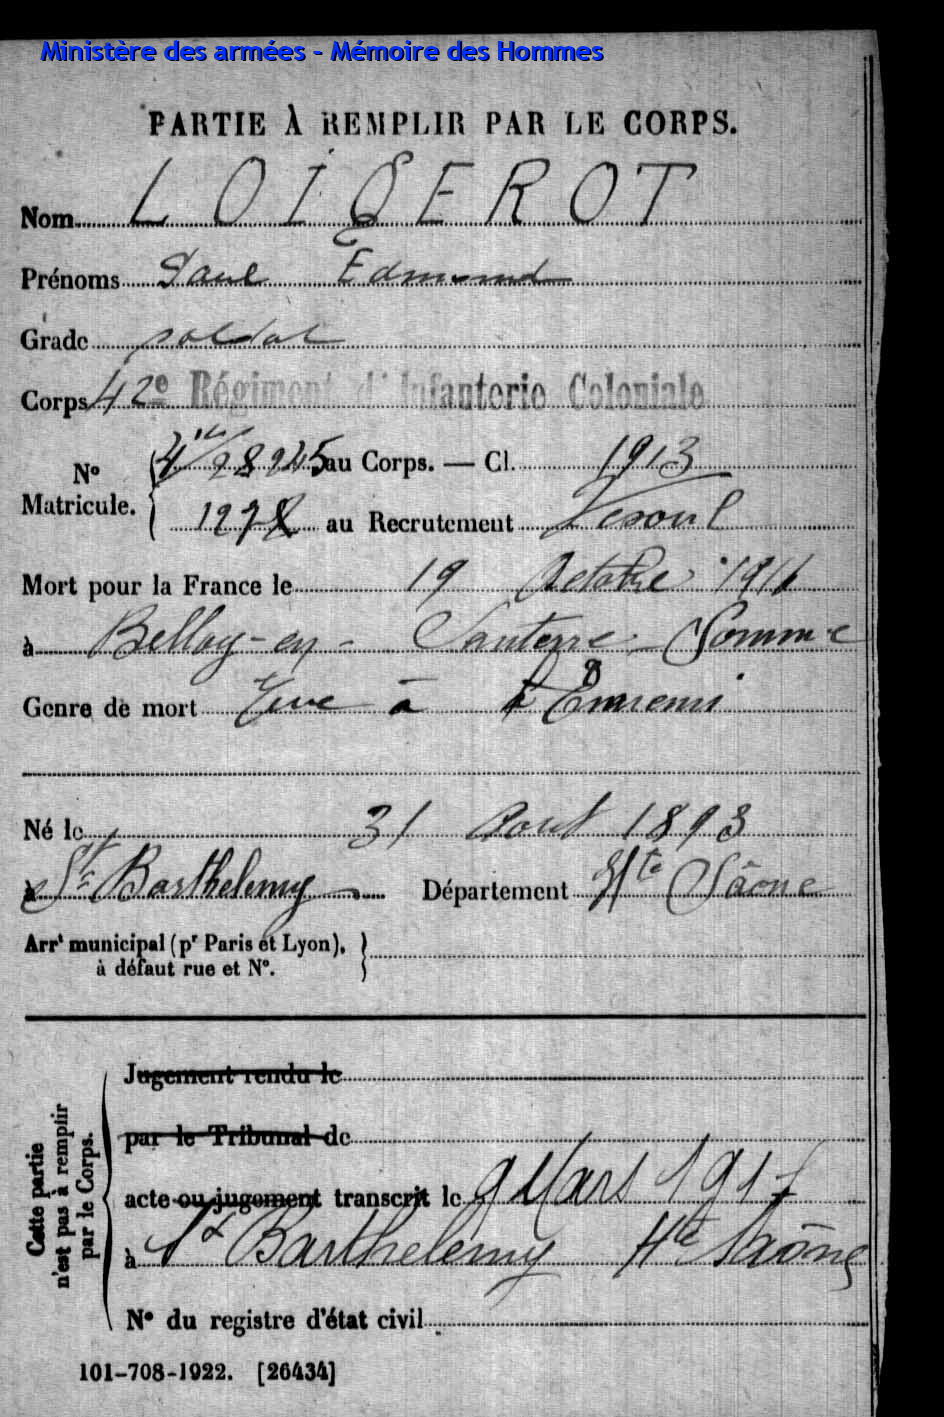 Ministère des armées - Mémoire des Hommes
PARTIE À REMPLIR PAR LE CORPS.
Nom LOIGEROT
Prénoms Paul Edmond
Grade soldat
Corps 42e Régiment d'Infanterie Coloniale
N° Matricule. 28945 au Corps. — Cl. 1913
1278 au Recrutement Vesoul
Mort pour la France le 19 Octobre 1916
à Belloy-en-Santerre Somme
Genre de mort Tué à l'Ennemi
Né le 31 Août 1893
à St Barthelemy Département Hte Sâone
Arrt municipal (pr Paris et Lyon),
à défaut rue et N°.
Cette partie
n'est pas à remplir
par le Corps.
Jugement rendu le
par le Tribunal de
acte ou jugement transcrit le 9 Mars 1917
à St Barthelémy Hte Saône
N° du registre d'état civil
101-708-1922. [26434]